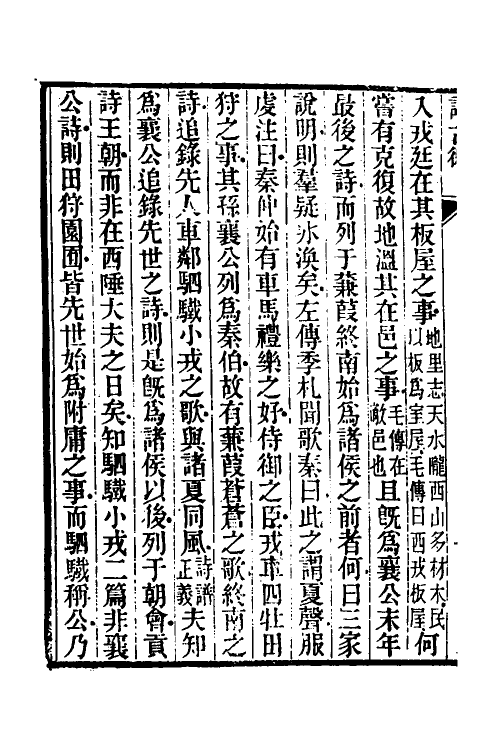 入戎廷在其板屋之事地里志天水隴西山多材木民以板爲室屋毛傳曰西戎板屋何
嘗有克復故地溫其在邑之事毛傳在敵邑也且旣爲襄公末年
最後之詩而列于蒹葭終南始爲諸侯之前者何曰三家
說明則羣疑冰渙矣左傳季札聞歌秦曰此之謂夏聲服
虔注曰秦仲始有車馬禮樂之好侍御之臣戎車四牡田
狩之事其孫襄公列爲秦伯故有蒹葭蒼蒼之歌終南之
詩追錄先人車鄰駟驖小戎之歌與諸夏同風詩譜正義夫知
爲襄公追錄先世之詩則是旣爲諸侯以後列于朝會貢
詩王朝而非在西陲大夫之日矣知駟驖小戎二篇非襄
公詩則田狩園囿皆先世始爲附庸之事而駟驖稱公乃